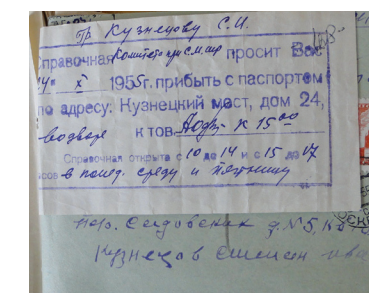 Гр. Кузнецову С.И.
Справочная Комитета при С.М. просит Вас
"14" X 1955г. прибыть с паспортом
по адресу: Кузнецкий мост, дом 24,
к тов. К 15⁰⁰
Справочная открыта с 10 до 14 и с 15 до 17
часов в понед. среду и пятницу
пер. д. №5, кв
Кузнецов